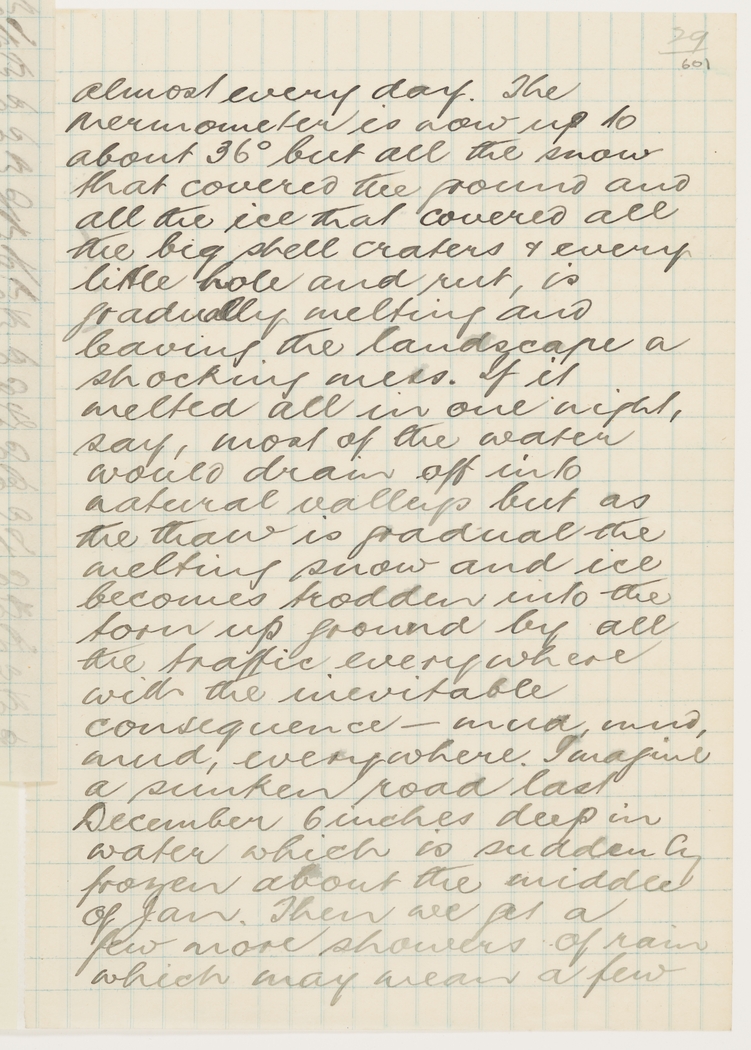 29
601
almost every day. The
thermometer is now up to
about 36° but all the snow
that covered the ground and
all the ice that covered all
the big shell craters & every
little hole and rut, is
gradually melting and
leaving the landscape a
shocking mess. If it
melted all in one night,
say, most of the water
would drain off into
natural valleys but as
the thaw is gradual the
melting snow and ice
becomes trodden into the
torn up ground by all
the traffic everywhere
with the inevitable
consequence — mud, mud,
mud, everywhere. Imagine
a sunken road last
December 6 inches deep in
water which is suddenly
frozen about the middle
of Jan. Then we get a
few more showers of rain
which may mean a few